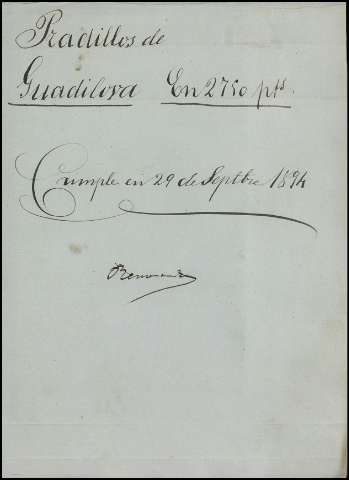 Pradillos de
Guadilova En 2750 pts.
Cumple en 29 de Septbre 1894